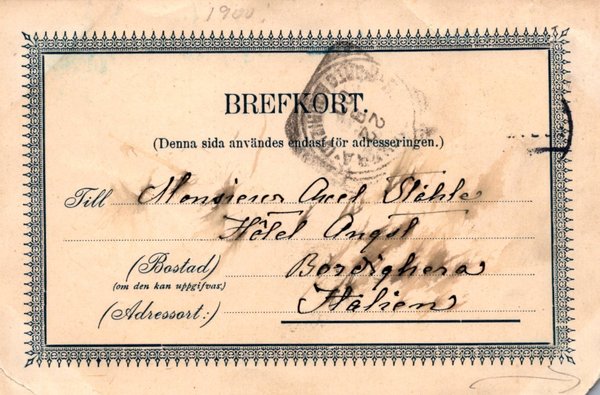 1900.
BREFKORT.
(Denna sida användes endast för adresseringen.)
Till Monsieur Axel Ståhle
Hôtel Angst
(Bostad) Bordighera
(om den kan uppgifvas.)
(Adressort:) Italien